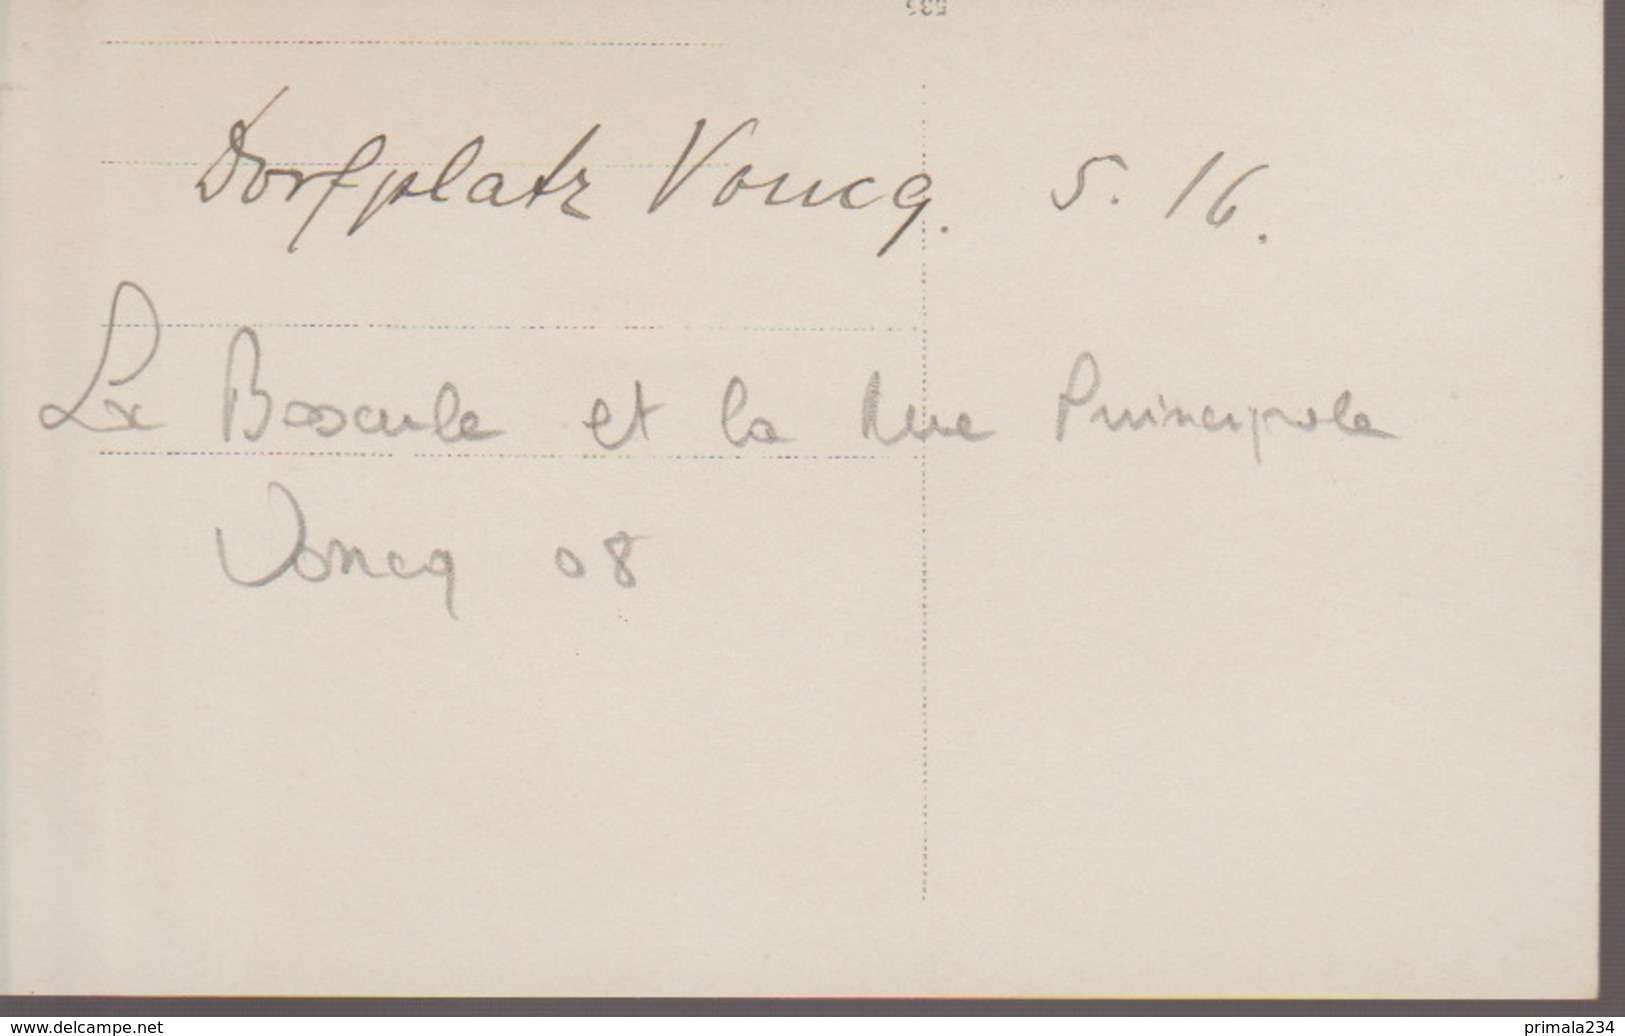 535
Dorfplatz Voucq. 5. 16.
La Bascule et la Rue Principale
Voncq 08
www.delcampe.net
primala234